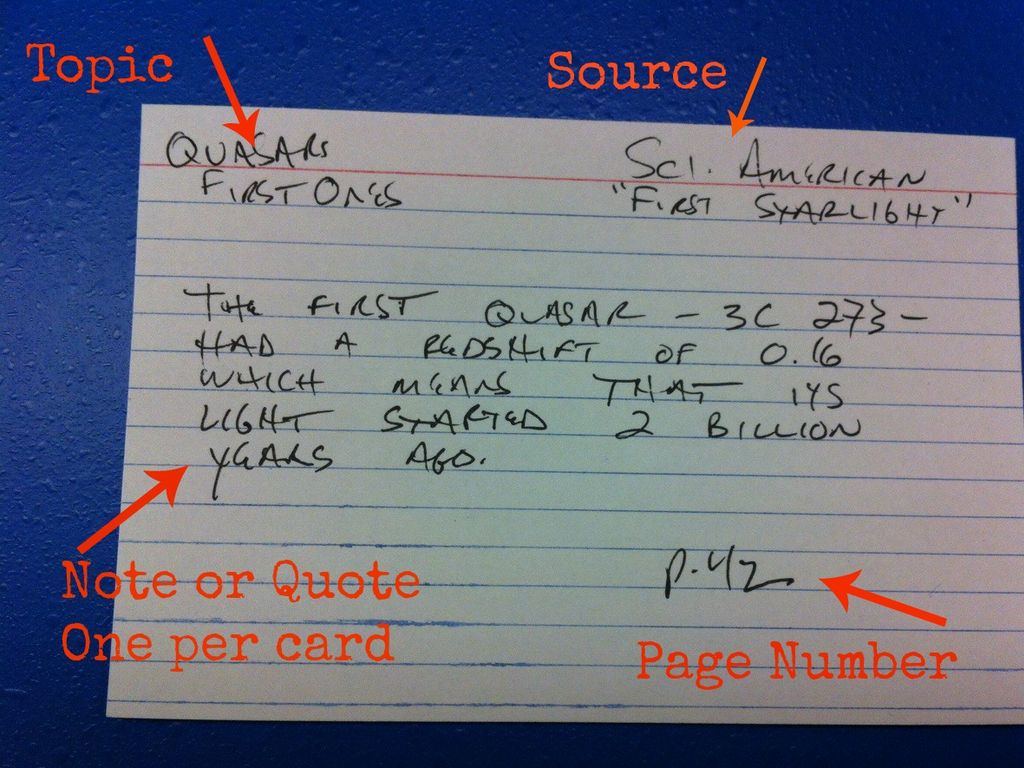 Topic
Source
QUASARS
FIRST ONES
SCI. AMERICAN
"FIRST STARLIGHT"
THE FIRST QUASAR - 3C 273 -
HAD A REDSHIFT OF 0.16
WHICH MEANS THAT ITS
LIGHT STARTED 2 BILLION
YEARS AGO.
Note or Quote
One per card
p. 42
Page Number